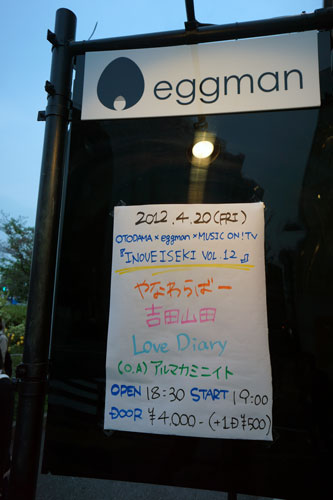 eggman
2012.4.20(FRI)
OTODAMA×eggman×MUSIC ON!TV
『INOUE ISEKI VOL.12』
やなわらばー
吉田山田
Love Diary
(O.A)アルマカミニイト
OPEN 18:30 START 19:00
DOOR ¥4,000-(+1D¥500)